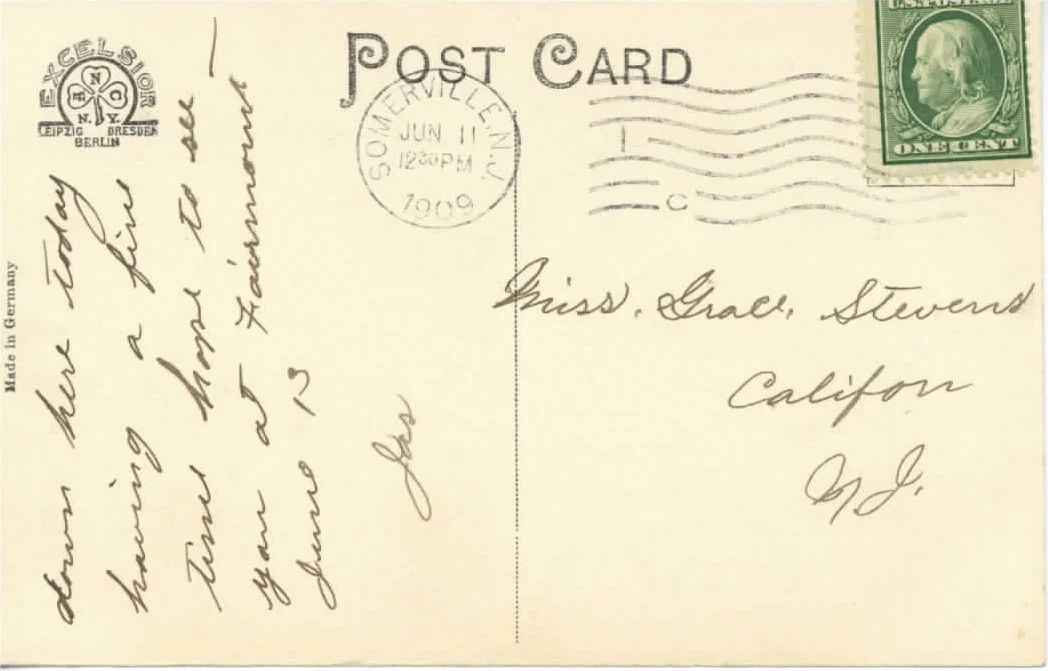 POST CARD
EXCELSIOR
N
E C
N. Y.
LEIPZIG DRESDEN
BERLIN
Made in Germany
SOMERVILLE, N.J.
JUN 11
12 30 PM
1909
1
C
U.S. POSTAGE
ONE CENT
down here today
having a fine
time hope to see
you at Fairmount
June 13
Jas
Miss. Grace. Stevens
Califon
N. J.